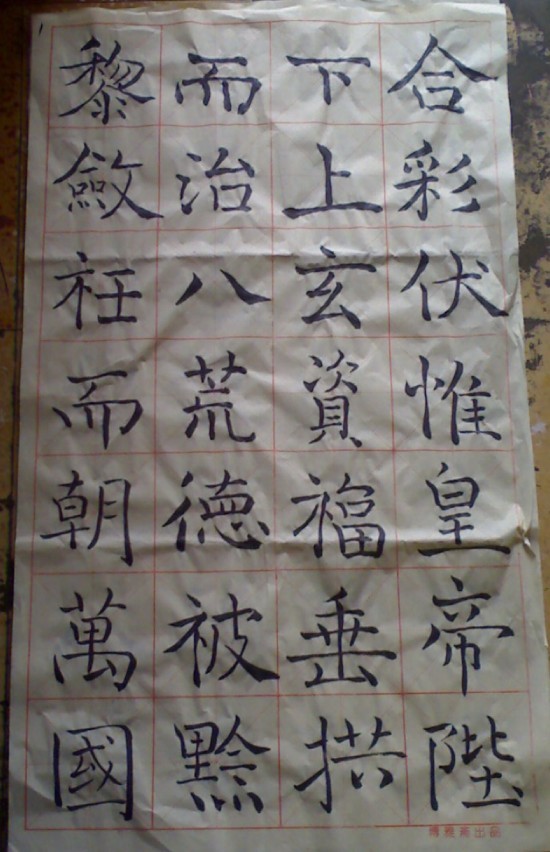 合彩伏惟皇帝陛
下上玄資福垂拱
而治八荒德被黔
黎斂衽而朝萬國